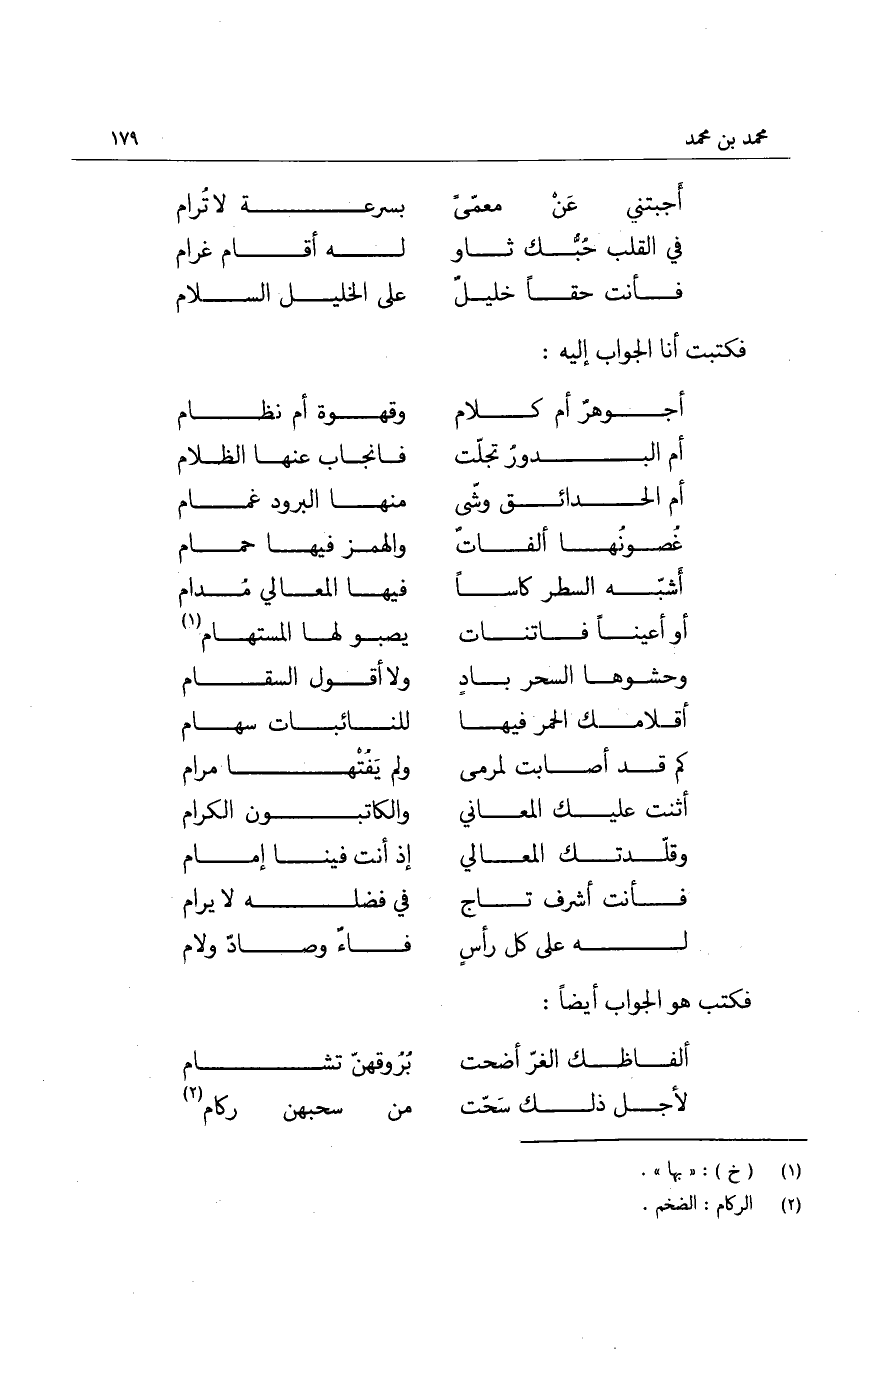 محمد بن محمد ١٧٩
أَجبتني عَنْ معمّىً بسرعة لا تُرام
في القلب حُبُّك ثاو له أقام غرام
فأنت حقاً خليلٌ على الخليل السلام
فكتبت أنا الجواب إليه :
أجوهرٌ أم كلام وقهوة أم نظام
أم البدورُ تجلّت فانجاب عنها الظلام
أم الحدائق وشّى منها البرود غمام
غُصونُها ألفاتٌ والهمز فيها حمام
أَشبّه السطر كاساً فيها المعالي مُدام
أو أعيناً فاتنات يصبو لها المستهام(١)
وحشوها السحر بادٍ ولا أقول السقام
أقلامك الحمر فيها للنائبات سهام
كم قد أصابت لمرمى ولم يَفُتْها مرام
أثنت عليك المعاني والكاتبون الكرام
وقلّدتك المعالي إذ أنت فينا إمام
فأنت أشرف تاج في فضله لا يرام
له على كل رأسٍ فاءٌ وصادٌ ولام
فكتب هو الجواب أيضاً :
ألفاظك الغرّ أضحت بُرُوقهنّ تشام
لأجل ذلك سَحّت من سحبهن ركام(٢)
(١) ( خ ) : « بها » .
(٢) الركام : الضخم .